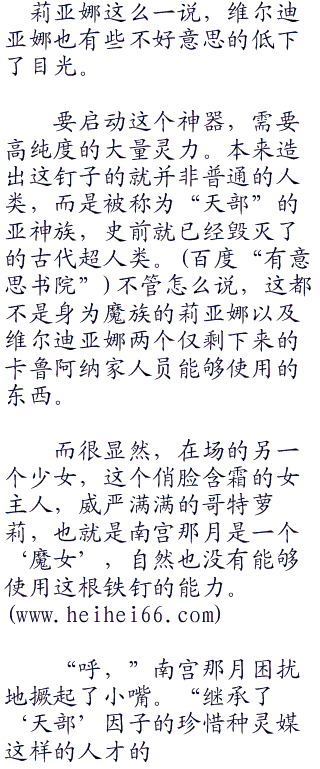 莉亚娜这么一说，维尔迪
亚娜也有些不好意思的低下
了目光。
要启动这个神器，需要
高纯度的大量灵力。本来造
出这钉子的就并非普通的人
类，而是被称为“天部”的
亚神族，史前就已经毁灭了
的古代超人类。(百度“有意
思书院”)不管怎么说，这都
不是身为魔族的莉亚娜以及
维尔迪亚娜两个仅剩下来的
卡鲁阿纳家人员能够使用的
东西。
而很显然，在场的另一
个少女，这个俏脸含霜的女
主人，威严满满的哥特萝
莉，也就是南宫那月是一个
‘魔女’，自然也没有能够
使用这根铁钉的能力。
(www.heihei66.com)
“呼，”南宫那月困扰
地撅起了小嘴。“继承了
‘天部’因子的珍惜种灵媒
这样的人才的